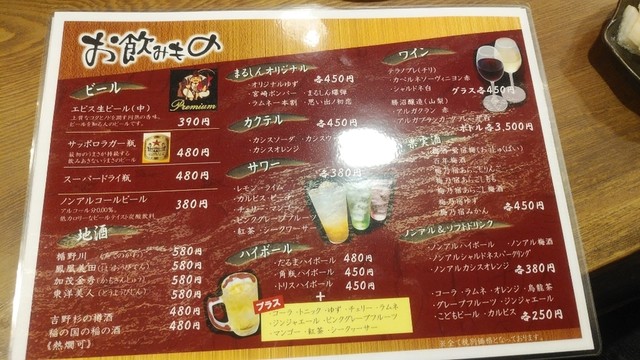 お飲みもの
ビール
エビス生ビール(中)
390円
Premium
サッポロラガー瓶
480円
スーパードライ瓶
480円
ノンアルコールビール
380円
アルコール分0.00%
地酒
楯野川
580円
鳳凰美田
580円
加茂金秀
580円
東洋美人
580円
吉野杉の樽酒
480円
稲の国の稲の酒
480円
《熱燗可》
まるしんオリジナル
各450円
・オリジナルゆず
・宮崎ボンバー ・まるしん爆弾
・ラムネ一本割 ・思い出ノ初恋
カクテル
各450円
・カシスソーダ
・カシスオレンジ
サワー
各380円
・レモン・ライム
・カルピス
・ピンクグレープフルーツ
・紅茶・シークワーサー
ハイボール
・だるまハイボール 480円
・角瓶ハイボール 450円
・トリスハイボール 450円
+
プラス
コーラ・トニック・ゆず・チェリー・ラムネ
・ジンジャエール・ピンクグレープフルーツ
・マンゴー・紅茶・シークヮーサー
ワイン
テラノブレ(チリ)
・カベルネソーヴィニヨン 赤
・シャルドネ 白
グラス各450円
勝沼醸造(山梨)
・アルガクラン 赤
ボトル各3,500円
果実酒
・百年梅酒
・梅乃宿あらごしもも
・梅乃宿あらごし梅酒
・梅乃宿ゆず
・梅乃宿みかん
各450円
ノンアル&ソフトドリンク
・ノンアルハイボール ・ノンアル梅酒
・ノンアルシャルドネスパークリング
・ノンアルカシスオレンジ
各380円
・コーラ・ラムネ・オレンジ・烏龍茶
・グレープフルーツ・ジンジャエール
・こどもビール・カルピス
各250円